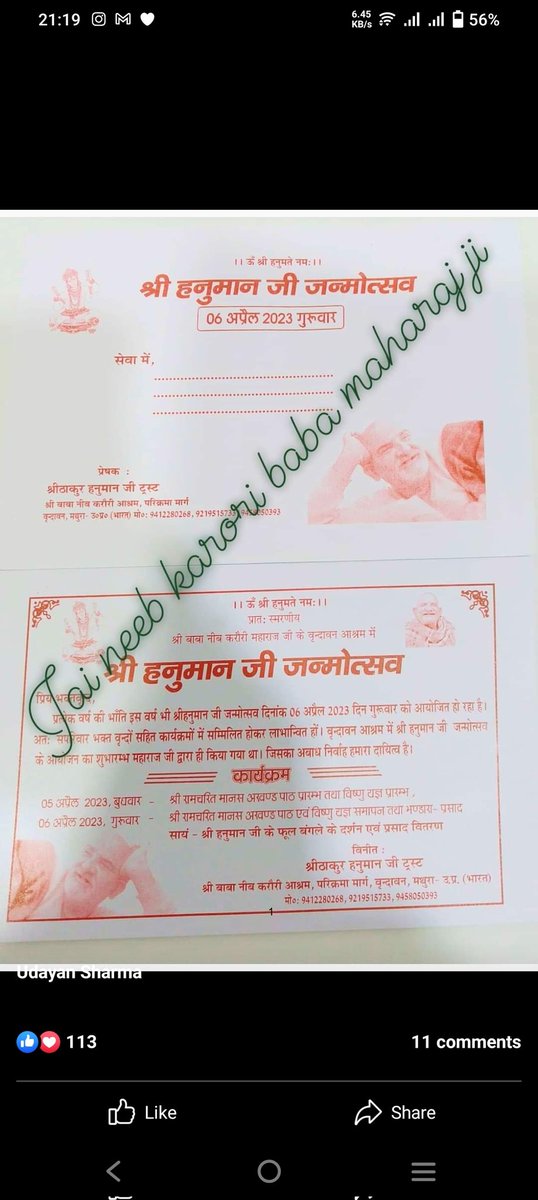 21:19
6.45
KB/s
56%
।। ॐ श्री हनुमते नमः।।
श्री हनुमान जी जन्मोत्सव
06 अप्रैल 2023 गुरूवार
सेवा में,
प्रेषक :
श्रीठाकुर हनुमान जी ट्रस्ट
श्री बाबा नीब करौरी आश्रम, परिक्रमा मार्ग
वृन्दावन, मथुरा- उ०प्र० (भारत) मो०: 9412280268, 9219515733, 9458050393
Jai neeb karori baba maharaj ji
।। ॐ श्री हनुमते नमः।।
प्रातः स्मरणीय
श्री बाबा नीब करौरी महाराज जी के वृन्दावन आश्रम में
श्री हनुमान जी जन्मोत्सव
प्रिय भक्तवृन्द,
प्रत्येक वर्ष की भाँति इस वर्ष भी श्रीहनुमान जी जन्मोत्सव दिनांक 06 अप्रैल 2023 दिन गुरूवार को आयोजित हो रहा है।
अतः सपरिवार भक्त वृन्दों सहित कार्यक्रमों में सम्मिलित होकर लाभान्वित हों। वृन्दावन आश्रम में श्री हनुमान जी जन्मोत्सव
के आयोजन का शुभारम्भ महाराज जी द्वारा ही किया गया था। जिसका अबाध निर्वाह हमारा दायित्व है।
कार्यक्रम
05 अप्रैल 2023, बुधवार - श्री रामचरित मानस अखण्ड पाठ प्रारम्भ तथा विष्णु यज्ञ प्रारम्भ,
06 अप्रैल 2023, गुरूवार - श्री रामचरित मानस अखण्ड पाठ एवं विष्णु यज्ञ समापन तथा भण्डारा- प्रसाद
सायं - श्री हनुमान जी के फूल बंगले के दर्शन एवं प्रसाद वितरण
विनीत :
श्रीठाकुर हनुमान जी ट्रस्ट
श्री बाबा नीब करौरी आश्रम, परिक्रमा मार्ग, वृन्दावन, मथुरा- उ.प्र. (भारत)
मो०: 9412280268, 9219515733, 9458050393
1
Udayan Sharma
113
11 comments
Like
Share